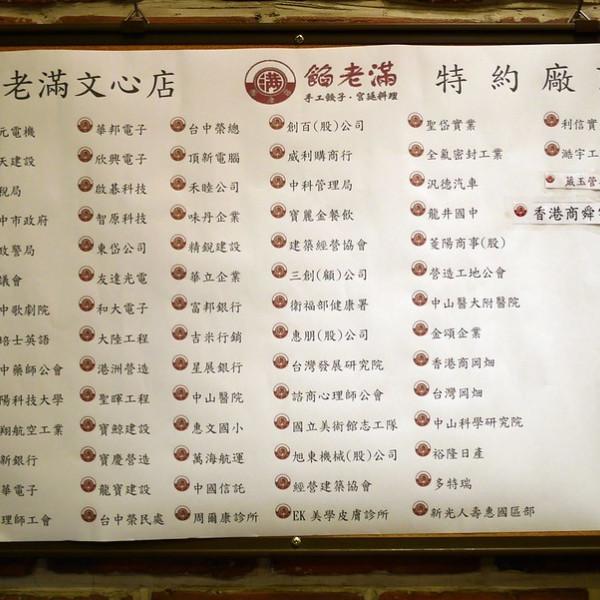 老滿文心店
滿
餡老滿
手工餃子·宮廷料理
特約廠
元電機
天建設
稅局
中市政府
政警局
議會
中歌劇院
培士英語
中藥師公會
陽科技大學
翔航空工業
新銀行
華電子
理師工會
華邦電子
欣興電子
啟碁科技
智原科技
東岱公司
友達光電
和大電子
大陸工程
港洲營造
聖暉工程
寶鯨建設
寶慶營造
龍寶建設
台中榮民處
台中榮總
頂新電腦
禾睦公司
味丹企業
精銳建設
華立企業
富邦銀行
吉米行銷
星展銀行
中山醫院
惠文國小
萬海航運
中國信託
周爾康診所
創百(股)公司
威利購商行
中科管理局
寶麗金餐飲
建築經營協會
三創(顧)公司
衛福部健康署
惠朋(股)公司
台灣發展研究院
諮商心理師公會
國立美術館志工隊
旭東機械(股)公司
經營建築協會
EK美學皮膚診所
聖岱實業
全氣密封工業
汎德汽車
龍井國中
菱陽商事(股)
營造工地公會
中山醫大附醫院
金頌企業
香港商岡畑
台灣岡畑
中山科學研究院
裕隆日產
多特瑞
新光人壽惠國區部
利信實
澔宇工
葳玉管
香港商舜